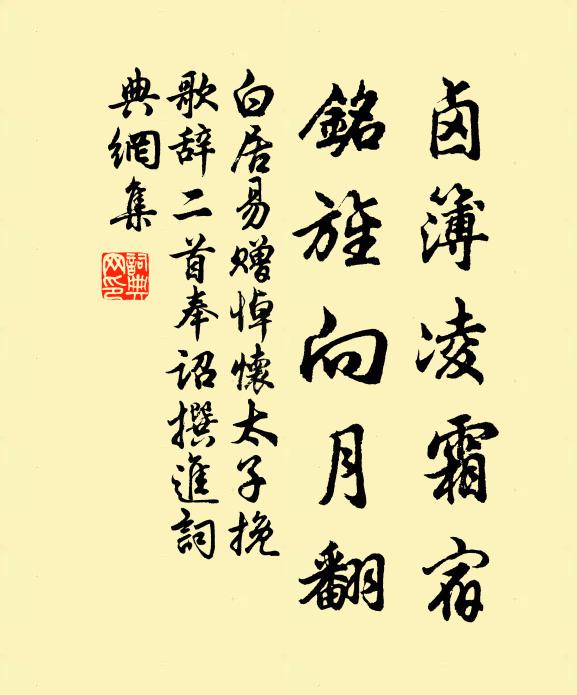 鹵簿凌霜宿
銘旌向月翻
白居易贈悼懷太子挽
歌辞二首奉詔撰進詞
典網集
詞典網印